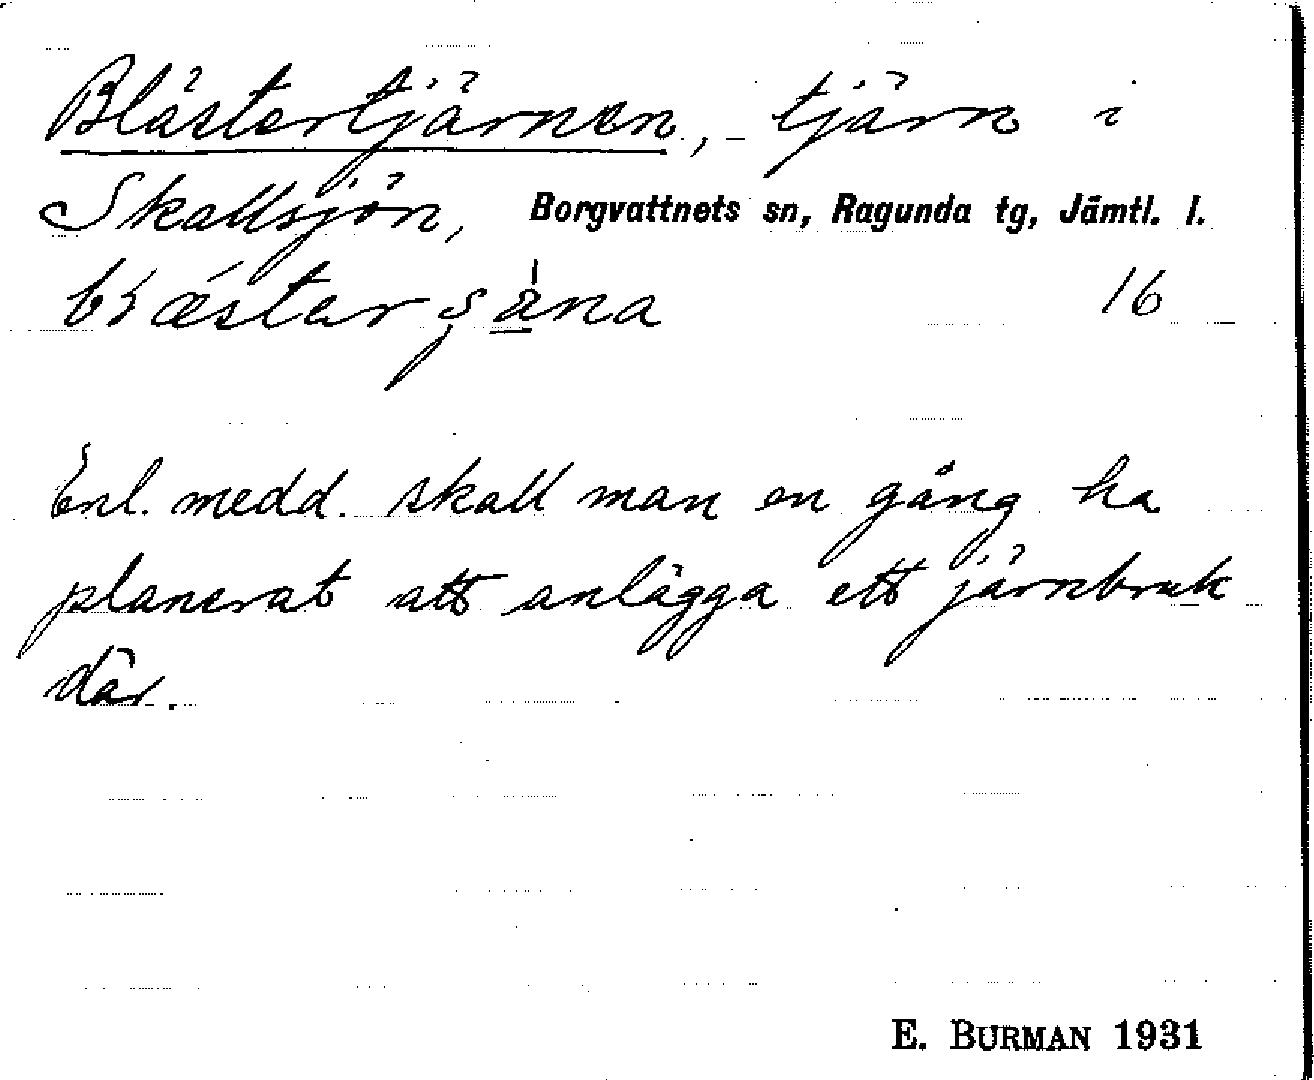 Blästertjärnen, tjärn i
Skallsjön, Borgvattnets sn, Ragunda tg, Jämtl. l.
16
Enl. medd. skall man en gång ha
planerat att anlägga ett järnbruk
där.
E. BURMAN 1931